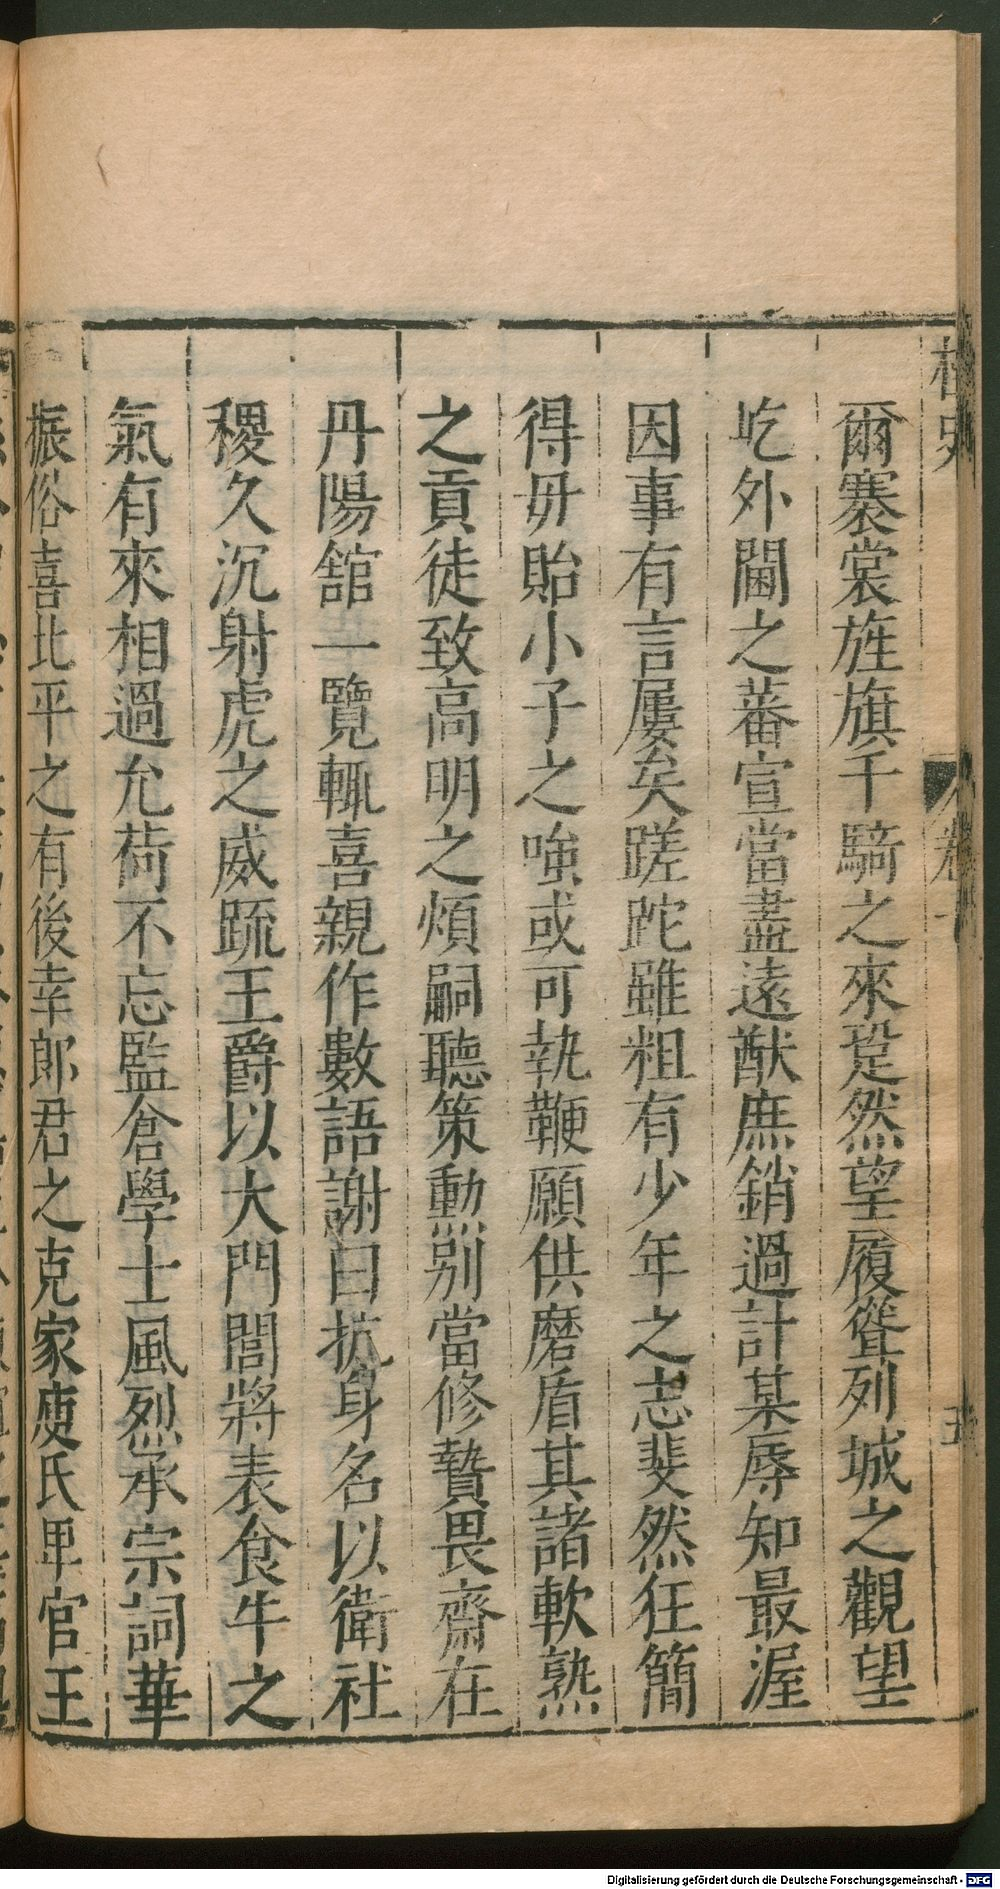 爾褰裳旌旗千騎之來跫然望履聳列城之觀望
屹外閫之蕃宣當盡遠猷庶銷過計某辱知最渥
因事有言屢矣蹉跎雖粗有少年之志斐然狂簡
得毋貽小子之嗤或可執鞭願供磨盾其諸軟熟
之貢徒致高明之煩嗣聽策勳别當修贄畏齋在
丹陽舘一覽輒喜親作數語謝曰抗身名以衛社
稷久沉射虎之威疏王爵以大門閭將表食牛之
氣有來相過允荷不忘監倉學士風烈承宗詞華
振俗喜北平之有後幸郎君之克家庾氏卑官王
卷一
五
Digitalisierung gefördert durch die Deutsche Forschungsgemeinschaft - DFG